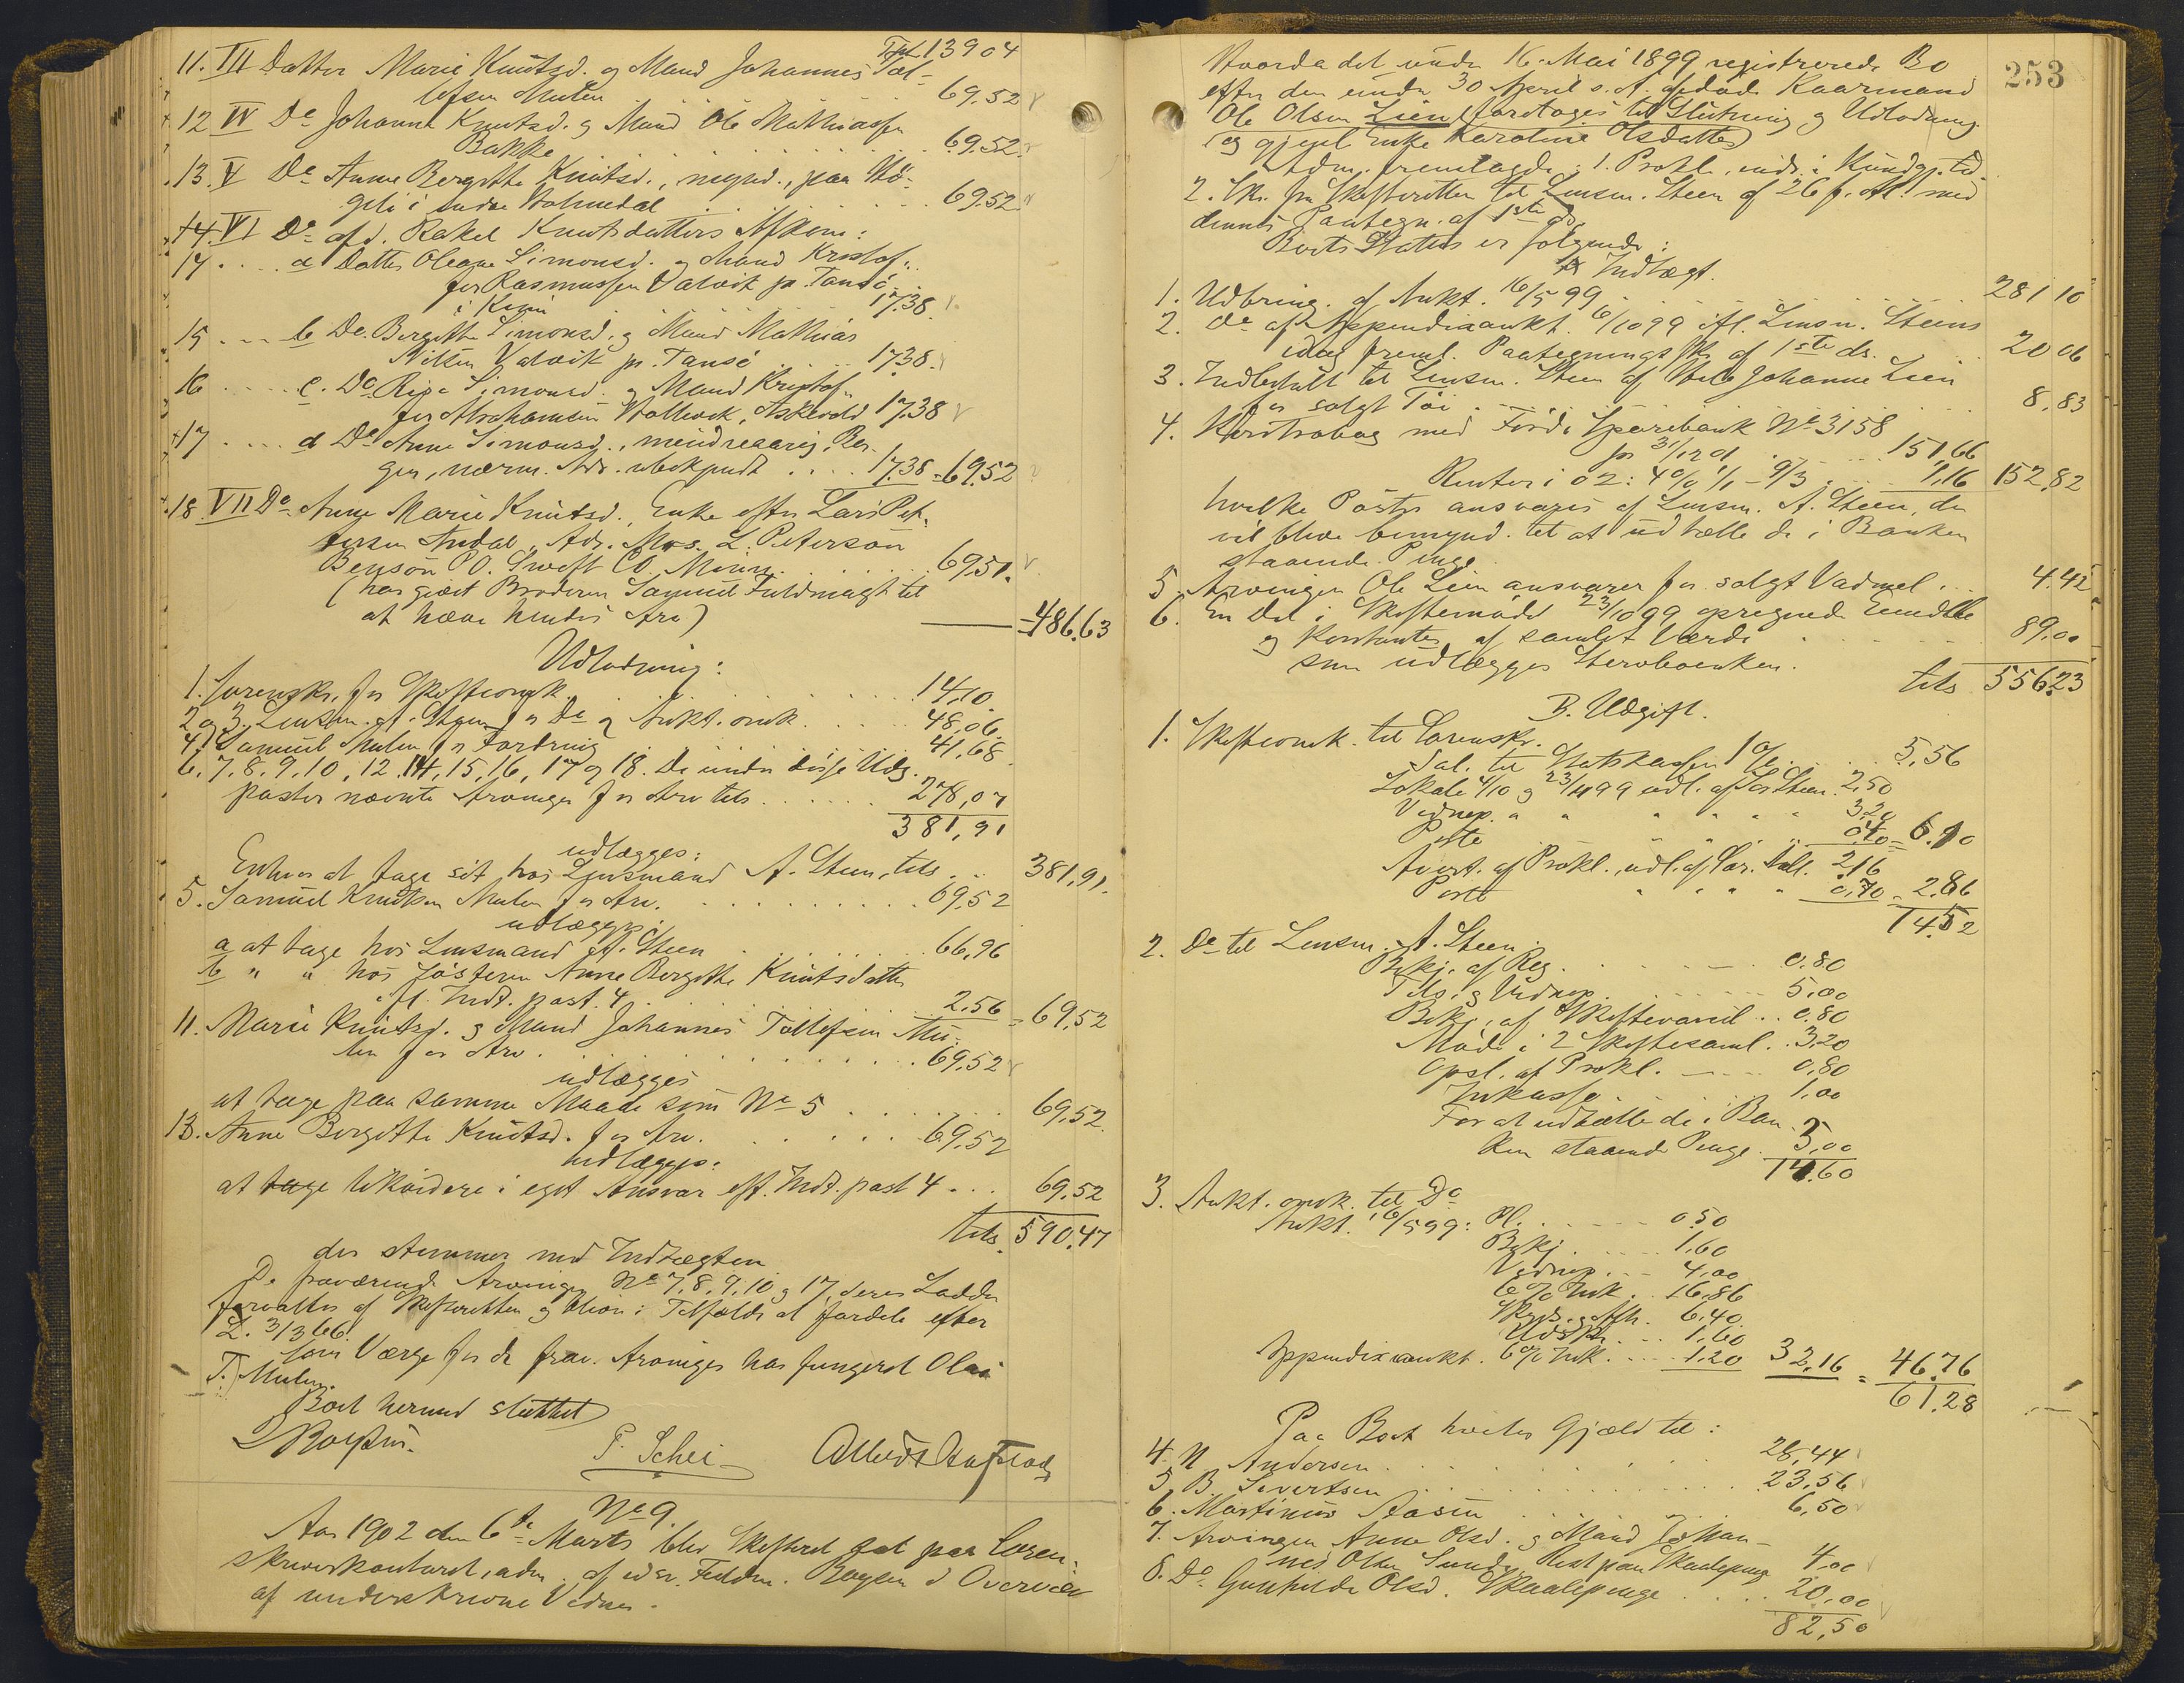 Tpt. 139 04
11. III Datter Marie Knutsd. og Mand Johannes Tol-
lefsen Mulen 69.52
12 IV Do Johanne Knutsd. og Mand Ole Mathiassen
Bakke 69.52.
13. V Do Anne Bergithe Knutsd., mynd., paa
i Indre Holmedal 69.52
14. VI Do afd. Rakel Knutsdatters Afkom:
14 .... a Datter Oleane Simonsd. og Mand Kristof-
fer Rasmussen Valvik pr. Tansø
i Kinn 17.38.
15 ... b Do. Bergithe Simonsd. og Mand Mathias
Nilsen Valvik pr. Tansø ... 17.38.
16 .... c. Do. Simonsd. og Mand Kristof-
fer Abrahamsen Askevold 17.38
17 .... d Do Anne Simonsd., mindreaarig, Ber-
gen, nærm. Adr. ubekjendt .... 17.38 = 69.52
18. VII Do. Anne Marie Knutsd., Enke efter Lars Pet-
tersen Indal, Adr. Mrs. L. Peterson
Benson P.O. Swift Co. Minn. 69.51.
(har givet Broderen Samuel Fuldmagt til
at hæve hendes Arv)
486.63
Udlodning:
1. Sorenskr. for Skifteomk. 14,10.
2 og 3. Lensm. A. Steen for Do og Aukt. omk. 48,06.
4) Samuel Mulen for Fordring 41,68
6. 7. 8. 9. 10, 12. 14, 15, 16, 17 og 18. De under disse Udg.
poster nævnte Arvinger for Arv tils. 278,07
381,91
udlægges:
Enhver at tage sit hos Lensmand A. Steen, tils. 381,91.
5. Samuel Knutsen Mulen for Arv. 69.52
udlægges:
a at tage hos Lensmand A. Steen 66,96
b " " hos Søsteren Anne Bergithe Knutsdatter
ifl. Indt. post. 4 2.56 = 69,52
11. Marie Knutsd. og Mand Johannes Tollefsen Mu-
len for Arv. 69.52
udlægges
at tage paa samme Maade som No 5 69,52.
13. Anne Bergithe Knutsd. for Arv. 69,52
udlægges:
at tage likvidere i eget Ansvar eft. Indt. post 4 ... 69,52
tils. 590.47
der stemmer med Indtægten
De fraværende Arvinger No 7, 8, 9, 10 og 17, deres Lodder
forvaltes af Skifteretten og bliver i Tilfælde at fordele efter
L. 3/3 66.
Som Værge for de frav. Arvinger har fungeret Olai
T. Mulen.
Boet hermed sluttet
Boysen.
P. Schei
No 9.
Aar 1902 den 6te Marts blev Skifteret sat paa Soren-
skriverkontoret, adm. af edsv. Fuldm. Boysen i Overvær
af underskrevne Vidner.
253
Hvorda det under 16. Mai 1899 registrerede Bo
efter den under 30 April s. A. afdøde Kaarmand
Ole Olsen Lien foretoges til Slutning og Udlodning
(og gjenl. Enke Karoline Olsdatter)
Adm. fremlagde: 1. Prokl., indr. i Kundgj. tid.
2. Skr. fra Skifteretten til Lensm. Steen af 26 f. M. med
dennes Paategn. af 1ste ds.
Boets Status er følgende:
A Indtægt.
1. Udbring. af Aukt. 16/5 99 281 10
2. Do af Appendixaukt. 6/10 99 ifl. Lensm. Steens
idag freml. Paategnings Skr. af 1ste ds. 20 06
3. Indbetalt til Lensm. Steen af Johanne Lien
for solgt Tøi 8,83
4. Kontrabog med Førde Sparebank No 3158
pr 31/12 01 151,66
Renter i 02: 4% 1/1 - 9/3 1,16 152,82
hvilke Poster ansvares af Lensm. A. Steen, der
vil blive bemynd. til at udhæve de i Banken
staaende Penge
5. Arvingen Ole Lien ansvarer for solgt Vadmel 4.42
6. En Del i Skiftemøde 23/10 99 opregnede Eiendele
og Kontanter af samlet Værdi 89.00
som udlægges Stervboenken.
tils 556.23
B. Udgift.
1. Skifteomk. til Sorenskr.
Sal. til Statskassen 1% 5,56
Lokale 4/10 og 23/11 99 udl. af Steen 2,50
Vidnep. " " " " " " 3.20
Porto " " " 0.40 = 6.10
Avert. af Prokl., udl. af Sor. 2,16
Porto " " " " 0,70 = 2.86
14.52
2. Do til Lensm. A. Steen
Bekj. af Reg. 0.80
Tils. og Vidnep. 5.00
Bekj. af Skiftevarsel .. 0.80
Møde i 2 Skiftesaml. .. 3,20
Opsl. af Prokl. 0,80
Inkasso 1,00
For at udhæve de i Ban-
ken staaende Penge. 3,00
14.60
3. Aukt. omk. til Do
Aukt. 16/5 99: Pl. 0.50
Bekj. 1.60
Vidnep. 4,00
6% Ink. 16,86
6,40
Udskr. 1,60
Appendixaukt. 6% Ink. 1.20 32,16 = 46.76
61,28
Paa Boet hviler Gjæld til:
4. N. Andersen 28,44
5. B. Sivertsen 23.56
6. Martinus Aasen 6,50
7. Arvingen Anne Olsd. og Mand Johan-
nes Olsen Sunde, Rest paa Skaalepenge 4,00
8. Do Gunhilde Olsd. Skaalepenge 20,00
82,50